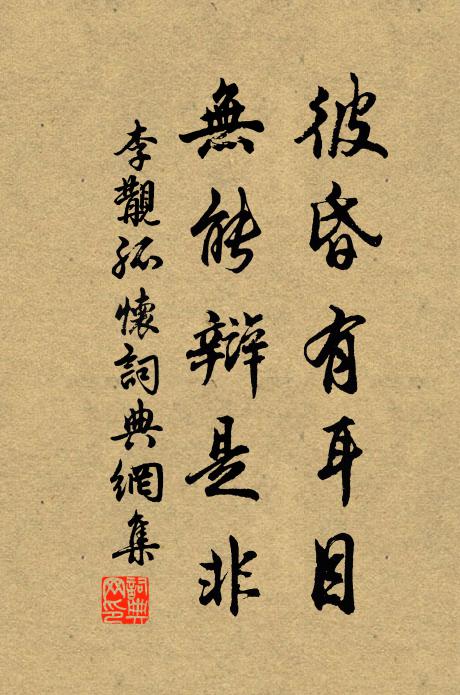 彼昏有耳目
無能辯是非
李覯孤懷詞典網集
詞典
网印